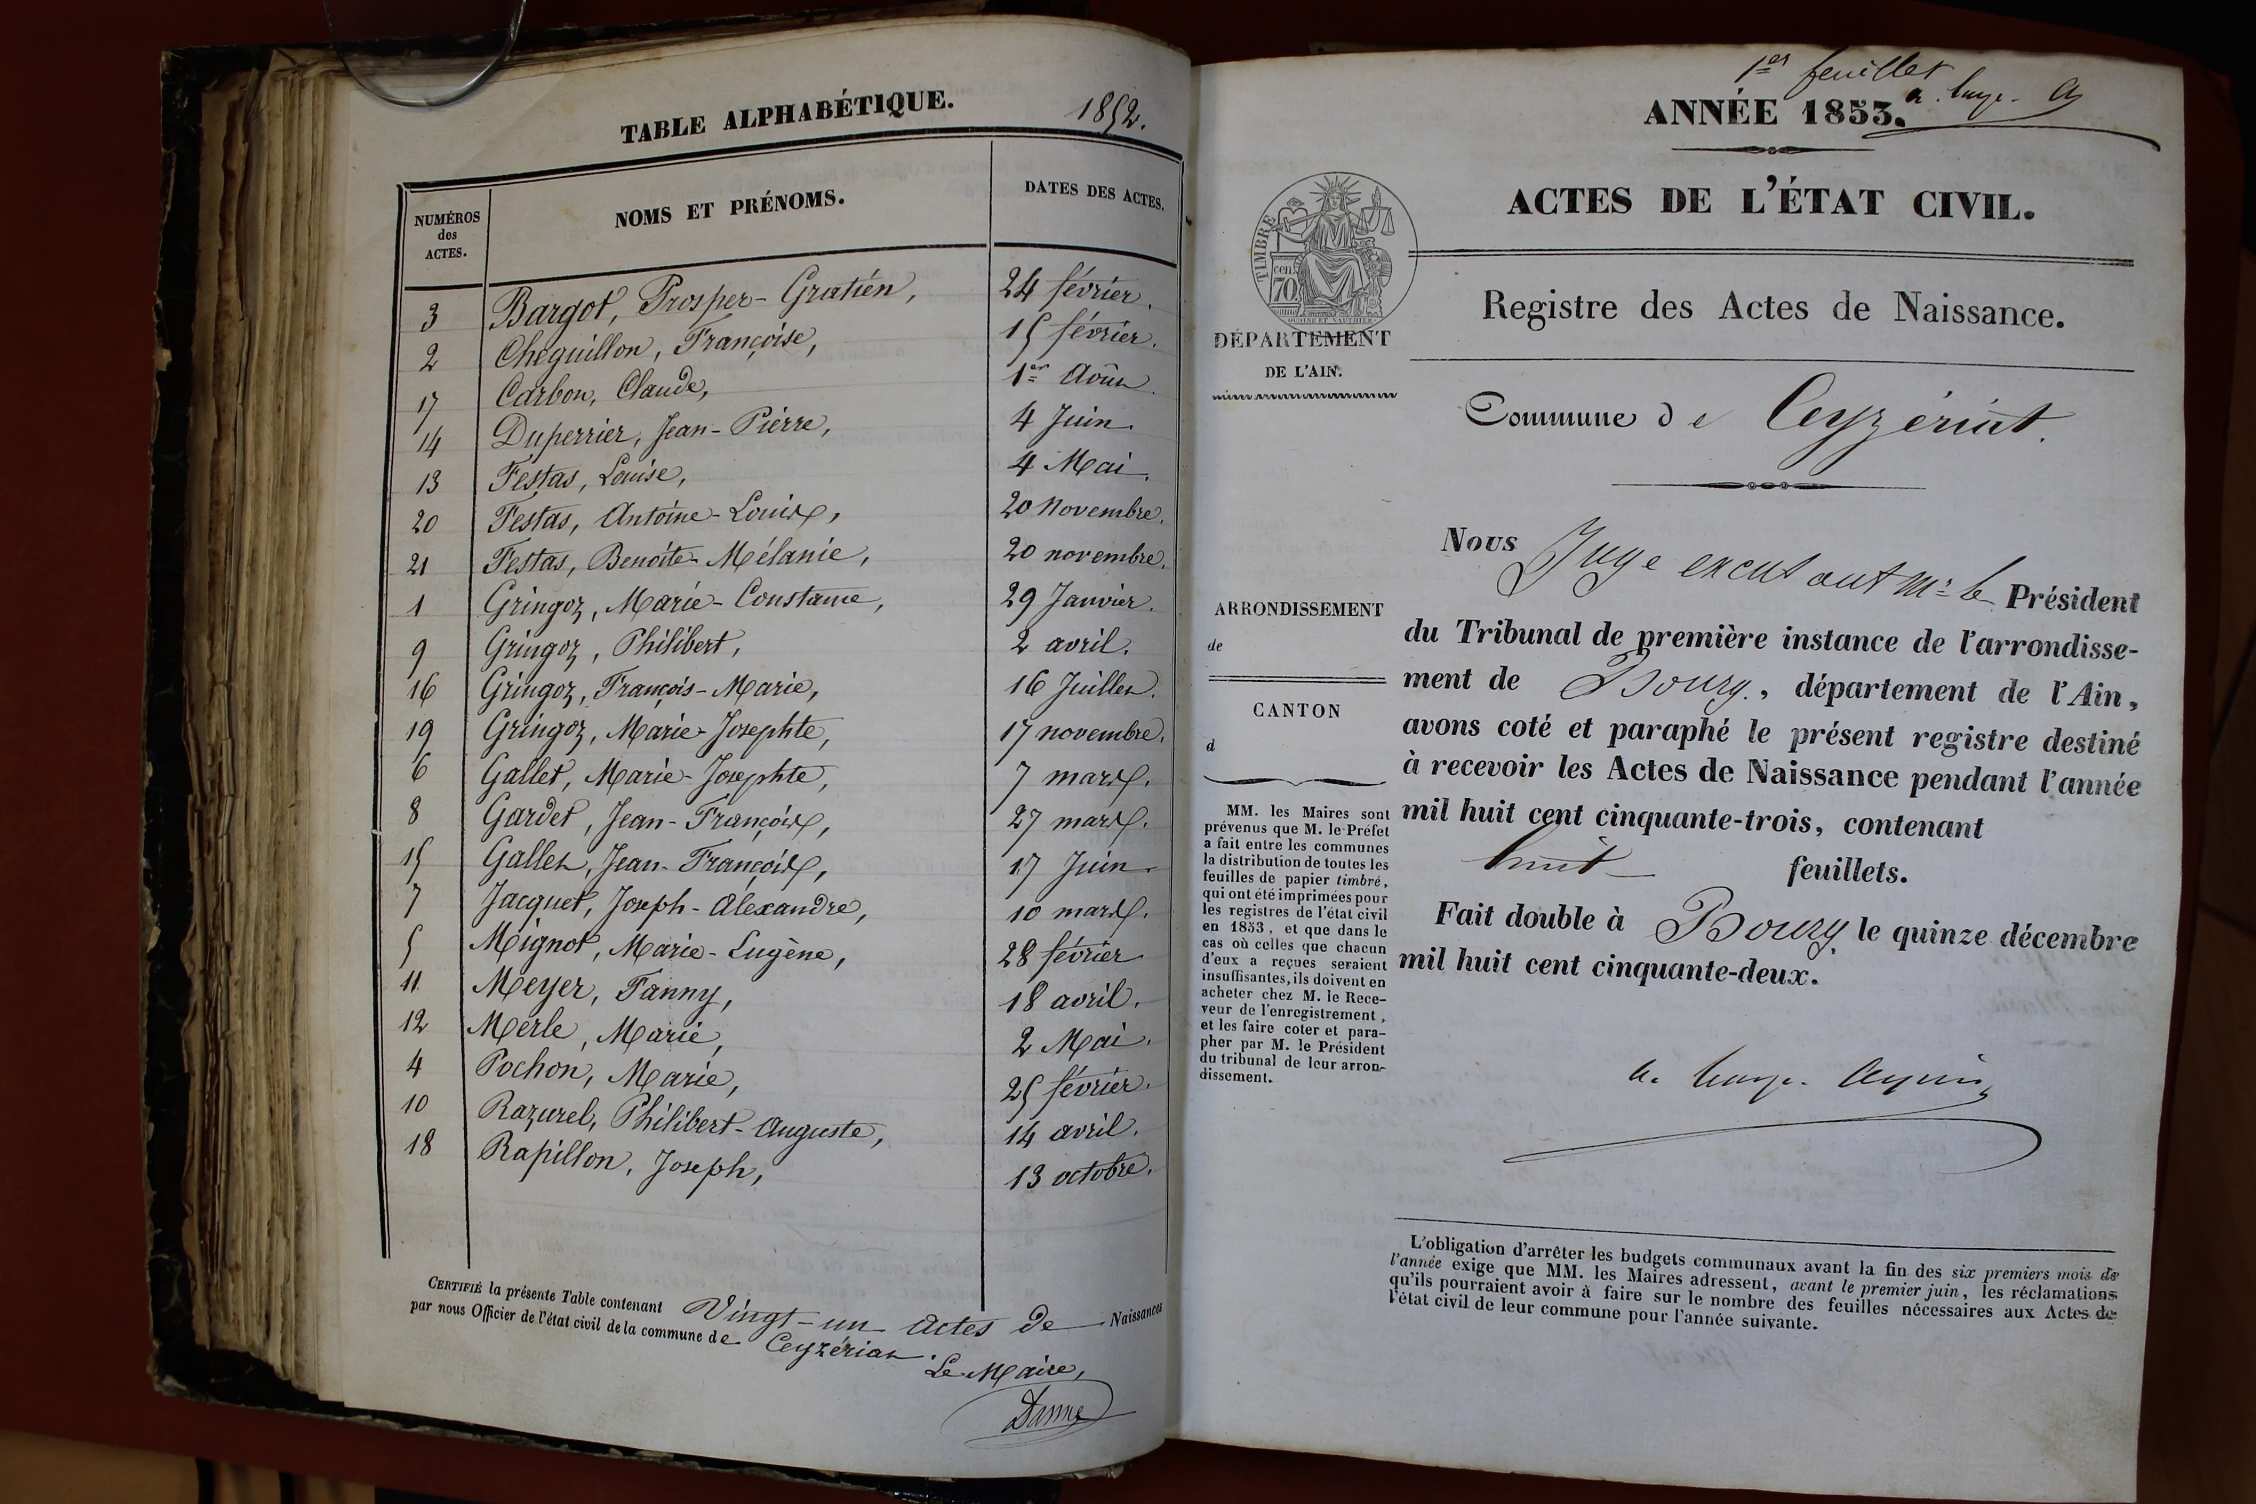 TABLE ALPHABÉTIQUE. 1852.
NUMÉROS des ACTES. NOMS ET PRÉNOMS. DATES DES ACTES.
3 Bargot, Prosper-Gratien, 24 février.
2 Cheguillon, Françoise, 15 février.
17 Carbon, Claude, 1er Août
14 Duperrier, Jean-Pierre, 4 Juin.
13 Festas, Louise, 4 Mai.
20 Festas, Antoine-Louis, 20 Novembre.
21 Festas, Benoite-Mélanie, 20 novembre.
1 Gringoz, Marie-Constance, 29 Janvier.
9 Gringoz, Philibert, 2 avril.
16 Gringoz, François-Marie, 16 Juillet.
19 Gringoz, Marie-Josephte, 17 novembre.
6 Gallet, Marie-Josephte, 7 mars.
8 Gardet, Jean-François, 27 mars.
15 Gallet, Jean-François, 17 Juin
7 Jacquet, Joseph-Alexandre, 10 mars.
5 Mignot, Marie-Eugène, 28 février
11 Meyer, Fanny, 18 avril.
12 Merle, Marie, 2 Mai.
4 Pochon, Marie, 25 février.
10 Razurel, Philibert-Auguste, 14 avril.
18 Rapillon, Joseph, 13 octobre.
CERTIFIÉ la présente Table contenant Vingt-un actes de Naissances
par nous Officier de l'état civil de la commune de Ceyzériat.
Le Maire,
1er feuillet
ANNÉE 1853.
ACTES DE L'ÉTAT CIVIL.
TIMBRE
70 cen
Registre des Actes de Naissance.
DÉPARTEMENT
DE L'AIN.
Commune de Ceyzériat.
ARRONDISSEMENT
de
CANTON
d
MM. les Maires sont
prévenus que M. le Préfet
a fait entre les communes
la distribution de toutes les
feuilles de papier timbré,
qui ont été imprimées pour
les registres de l'état civil
en 1853, et que dans le
cas où celles que chacun
d'eux a reçues seraient
insuffisantes, ils doivent en
acheter chez M. le Rece-
veur de l'enregistrement,
et les faire coter et para-
pher par M. le Président
du tribunal de leur arron-
dissement.
Nous Juge excusant Mr le Président
du Tribunal de première instance de l'arrondisse-
ment de Bourg, département de l'Ain,
avons coté et paraphé le présent registre destiné
à recevoir les Actes de Naissance pendant l'année
mil huit cent cinquante-trois, contenant
huit feuillets.
Fait double à Bourg le quinze décembre
mil huit cent cinquante-deux.
L'obligation d'arrêter les budgets communaux avant la fin des six premiers mois de
l'année exige que MM. les Maires adressent, avant le premier juin, les réclamations
qu'ils pourraient avoir à faire sur le nombre des feuilles nécessaires aux Actes de
l'état civil de leur commune pour l'année suivante.